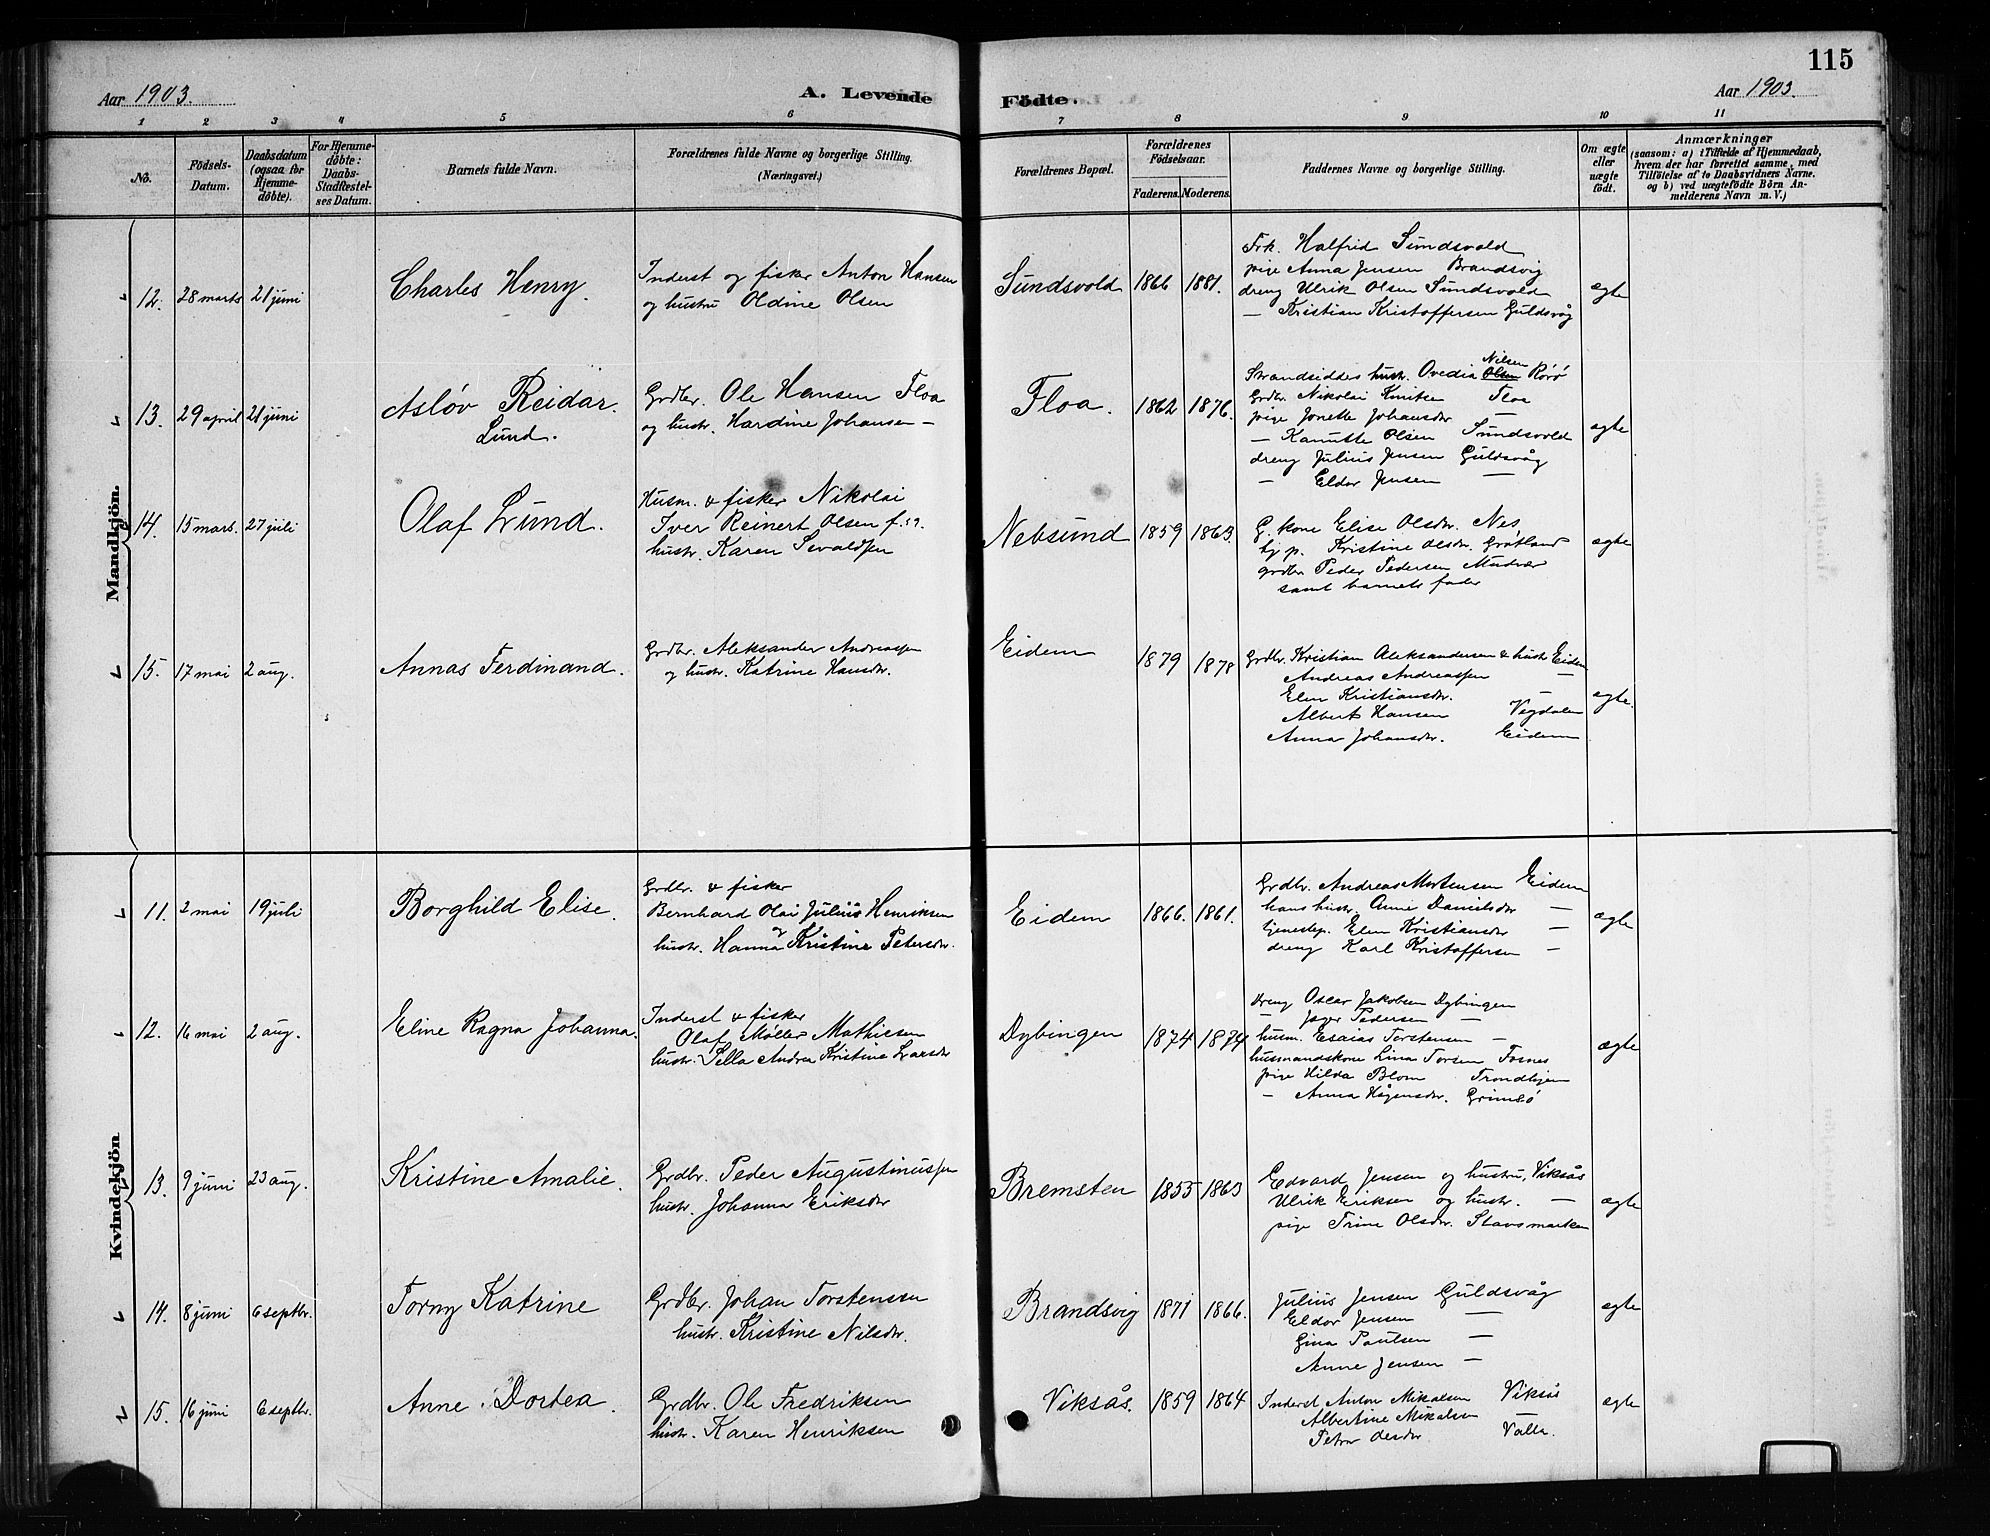 115
Aar 1903.
A. Levende
Födte.
Aar 1903.
1 2 3 4 5 6 7 8 9 10 11
No.
Födsels-
Datum.
Daabsdatum
(ogsaa for
Hjemme-
döbte).
For Hjemme-
döbte:
Daabs-
Stadfæstel-
ses Datum.
Barnets fulde Navn.
Forældrenes fulde Navne og borgerlige Stilling.
(Næringsvei.)
Forældrenes Bopæl.
Forældrenes
Födselsaar.
Faderens. Moderens.
Faddernes Navne og borgerlige Stilling.
Om ægte
eller
uægte
födt.
Anmærkninger
(saasom: a) i Tilfælde af Hjemmedaab,
hvem der har forrettet samme, med
Tilföielse af to Daabsvidners Navne.
og b) ved uægtefödte Börn An-
melderens Navn m. V.)
Mandkjön.
12. 28 marts 21 juni
Charles Henry.
Inderst og fisker Anton Hansen
og hustru Oldine Olsen
Sundsvold 1866 1881.
Frk. Halfrid Sundsvold
pige Anna Jensen Brandsvig
dreng Ulrik Olsen Sundsvold
— Kristian Kristoffersen Guldsvåg
ægte
13. 29 april 21 juni
Asløv Reidar.
Lund.
Grdbr. Ole Hansen Floa
og hustr. Hardine Johansen —
Floa. 1862 1876.
Nilsen
Strandsidders hustr. Ovedia Olsen Rørø
Grdbr. Nikolai Knutsen Floa
pige Jonette Johansdr —
— Kanutte Olsen Sundsvold
dreng Julius Jensen Guldsvåg
— Eldor Jensen —
ægte
14. 15 mars. 27 juli
Olaf Lund.
Husm. & fisker Nikolai
Iver Reinert Olsen f. 59.
hustr. Karen Sevaldsen
Nebsund 1859 1863.
G. kone Elise Olsdr. Nes,
tj p. Kristine Olsdr. Grøtland
grdbr Peder Pedersen Mudvær
samt barnets fader
ægte
15. 17 mai 2 aug.
Annas Ferdinand.
Grdbr. Aleksander Andreassen
og hustr. Katrine Hansdr.
Eidem 1879 1878
Grdbr. Kristian Aleksandersen & hustr Eidem
Andreas Andreassen —
Elen Kristiansdr. —
Albert Hansen Vegdalen
Anna Johansdr. Eidem
ægte.
Kvindekjön
11. 2 mai 19 juli
Borghild Elise.
Grdbr. & fisker
Bernhard Olai Julius Henriksen
hustr. Hanna Kristine Petersdr.
Eidem 1866. 1861.
Grdbr. Andreas Mortensen Eidem
hans hustr. Anne Danielsdr —
tjenestep. Elen Kristiansdr —
dreng Karl Kristoffersen —
ægte
12. 16 mai 2 aug.
Eline Ragna Johanna.
Inderst & fisker
Olaf Møller Mathiesen
hustr. Sella Andrea Kristine Larsdr
Dybingen 1874 1874
Dreng Oscar Jakobsen Dybingen
— Peder Pedersen —
husm. Esaias Torstensen —
husmandskone Lina Torsen Fosnes
pige Hilda Blom Trondhjem
— Anna Hågensdr. Grimsø
ægte
13. 9 juni 23 aug.
Kristine Amalie.
Grdbr. Peder Augustinussen
hustr. Johanna Eriksdr
Bremsten 1855 1863
Edvard Jensen og hustru, Viksås
Ulrik Eriksen og hustr. —
pige Trine Olsdr. Stavsmarken
ægte
14. 8 juni 6 septbr.
Torny Katrine
Grdbr. Johan Torstenssen
hustr. Kristine Nilsdr.
Brandsvig 1871 1866.
Julius Jensen Guldsvåg
Eldor Jensen —
Gina Paulsen —
Anne Jensen —
ægte
15. 16 juni 6 septbr.
Anne Dortea.
Grdbr. Ole Fredriksen
hustr. Karen Henriksen
Viksås. 1859 1864
Inderst Anton Mikalsen Viksås
Albertine Mikalsen —
Petra Olesdr Valla.
ægte